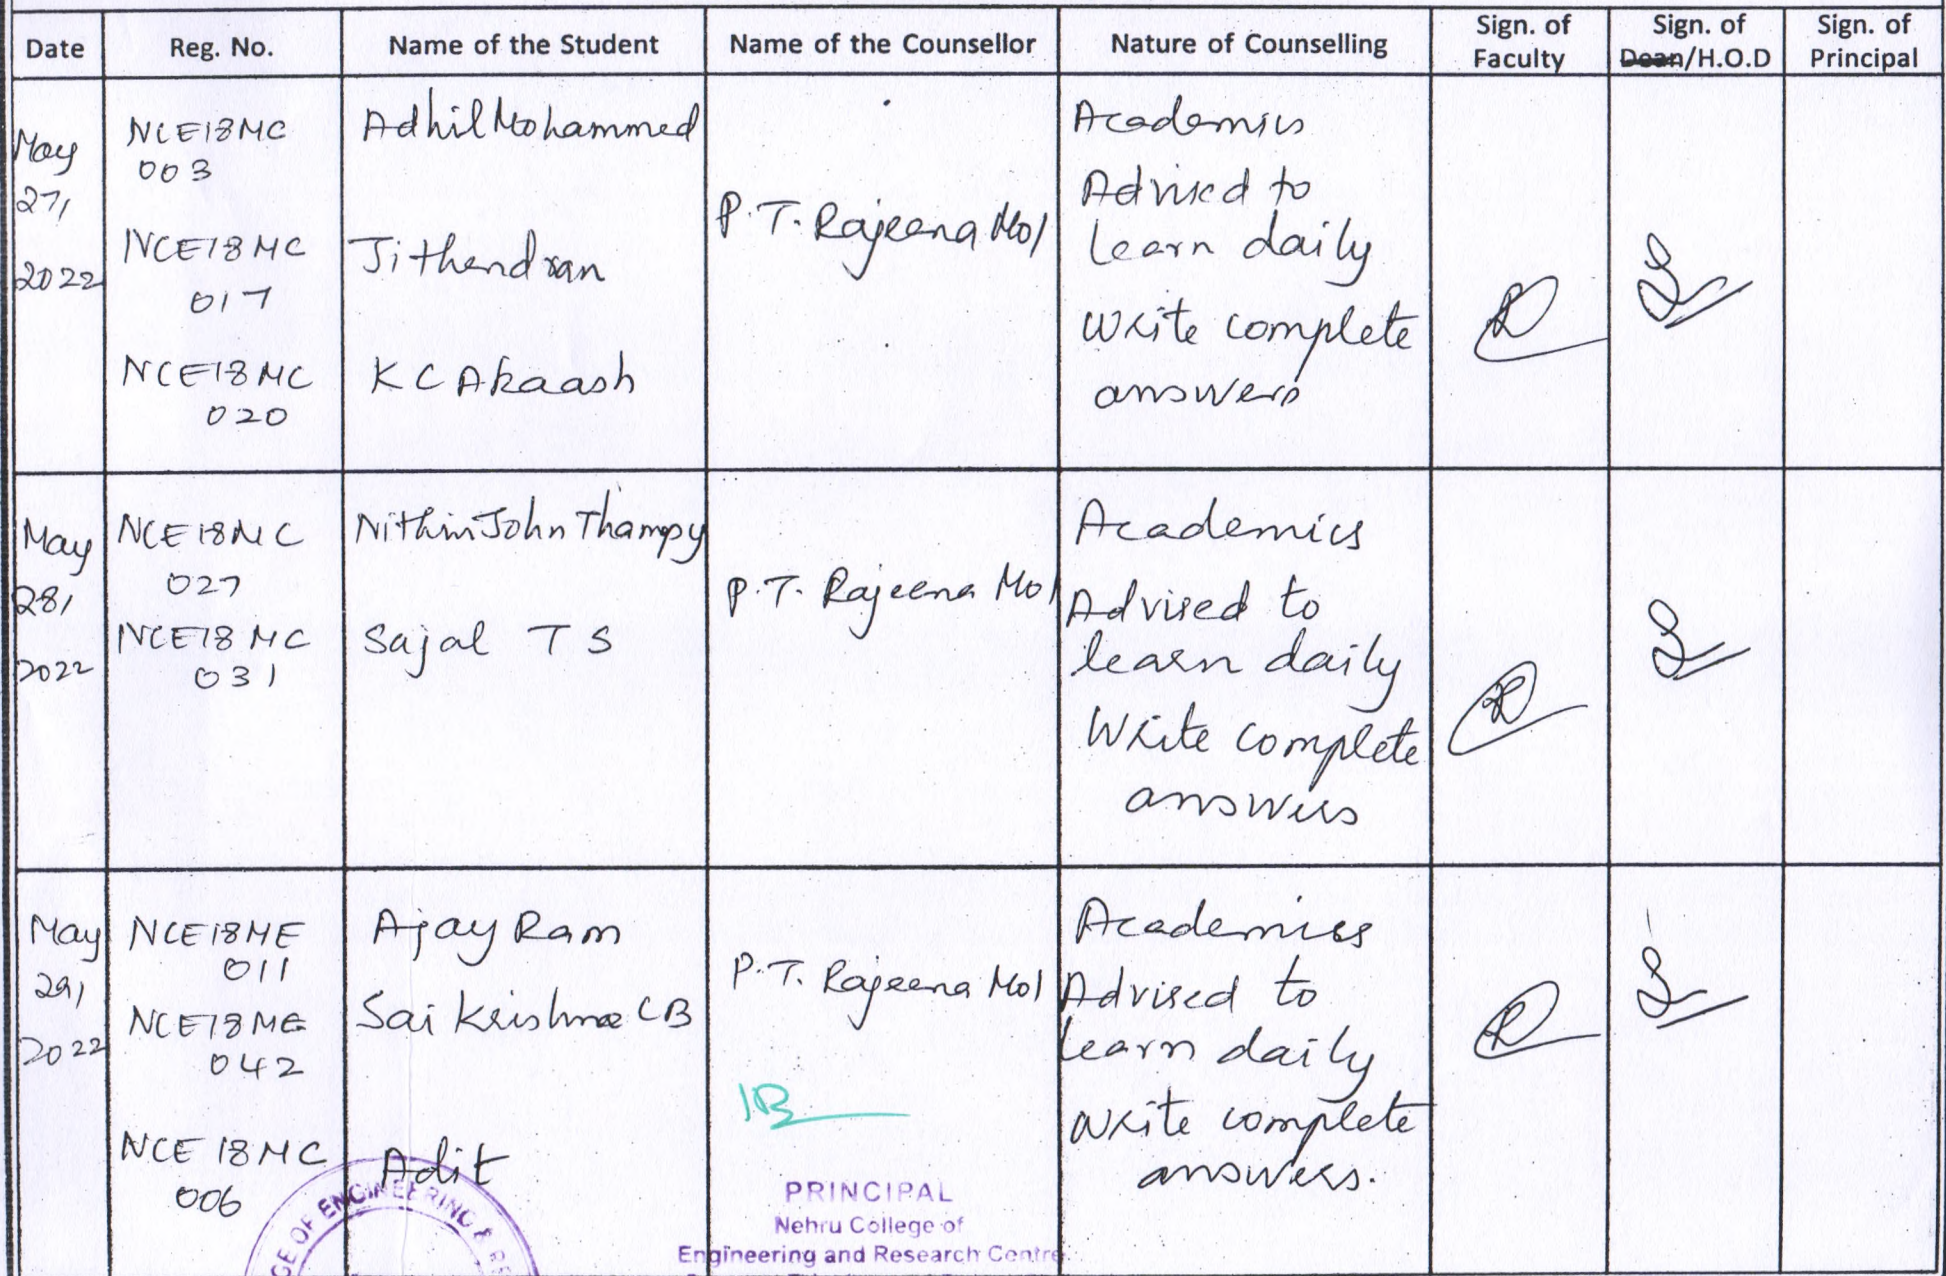 Date Reg. No. Name of the Student Name of the Counsellor Nature of Counselling Sign. of Faculty Sign. of Dean/H.O.D Sign. of Principal
May
27,
2022
NCE18MC
003
NCE18MC
017
NCE18MC
020
Adhil Mohammed
Jithendran
K C Akaash
P. T. Rajeena Mol
Academics
Advised to
learn daily
Write complete
answers
May
28,
2022
NCE18MC
027
NCE18MC
031
Nithin John Thampy
Sajal T S
P. T. Rajeena Mol
Academics
Advised to
learn daily
Write complete
answers
May
29,
2022
NCE18ME
011
NCE18ME
042
NCE 18MC
006
Ajay Ram
Sai Krishna CB
Adit
P. T. Rajeena Mol
PRINCIPAL
Nehru College of
Engineering and Research Centre
Academics
Advised to
learn daily
Write complete
answers.
GE OF ENGINEERING & RE